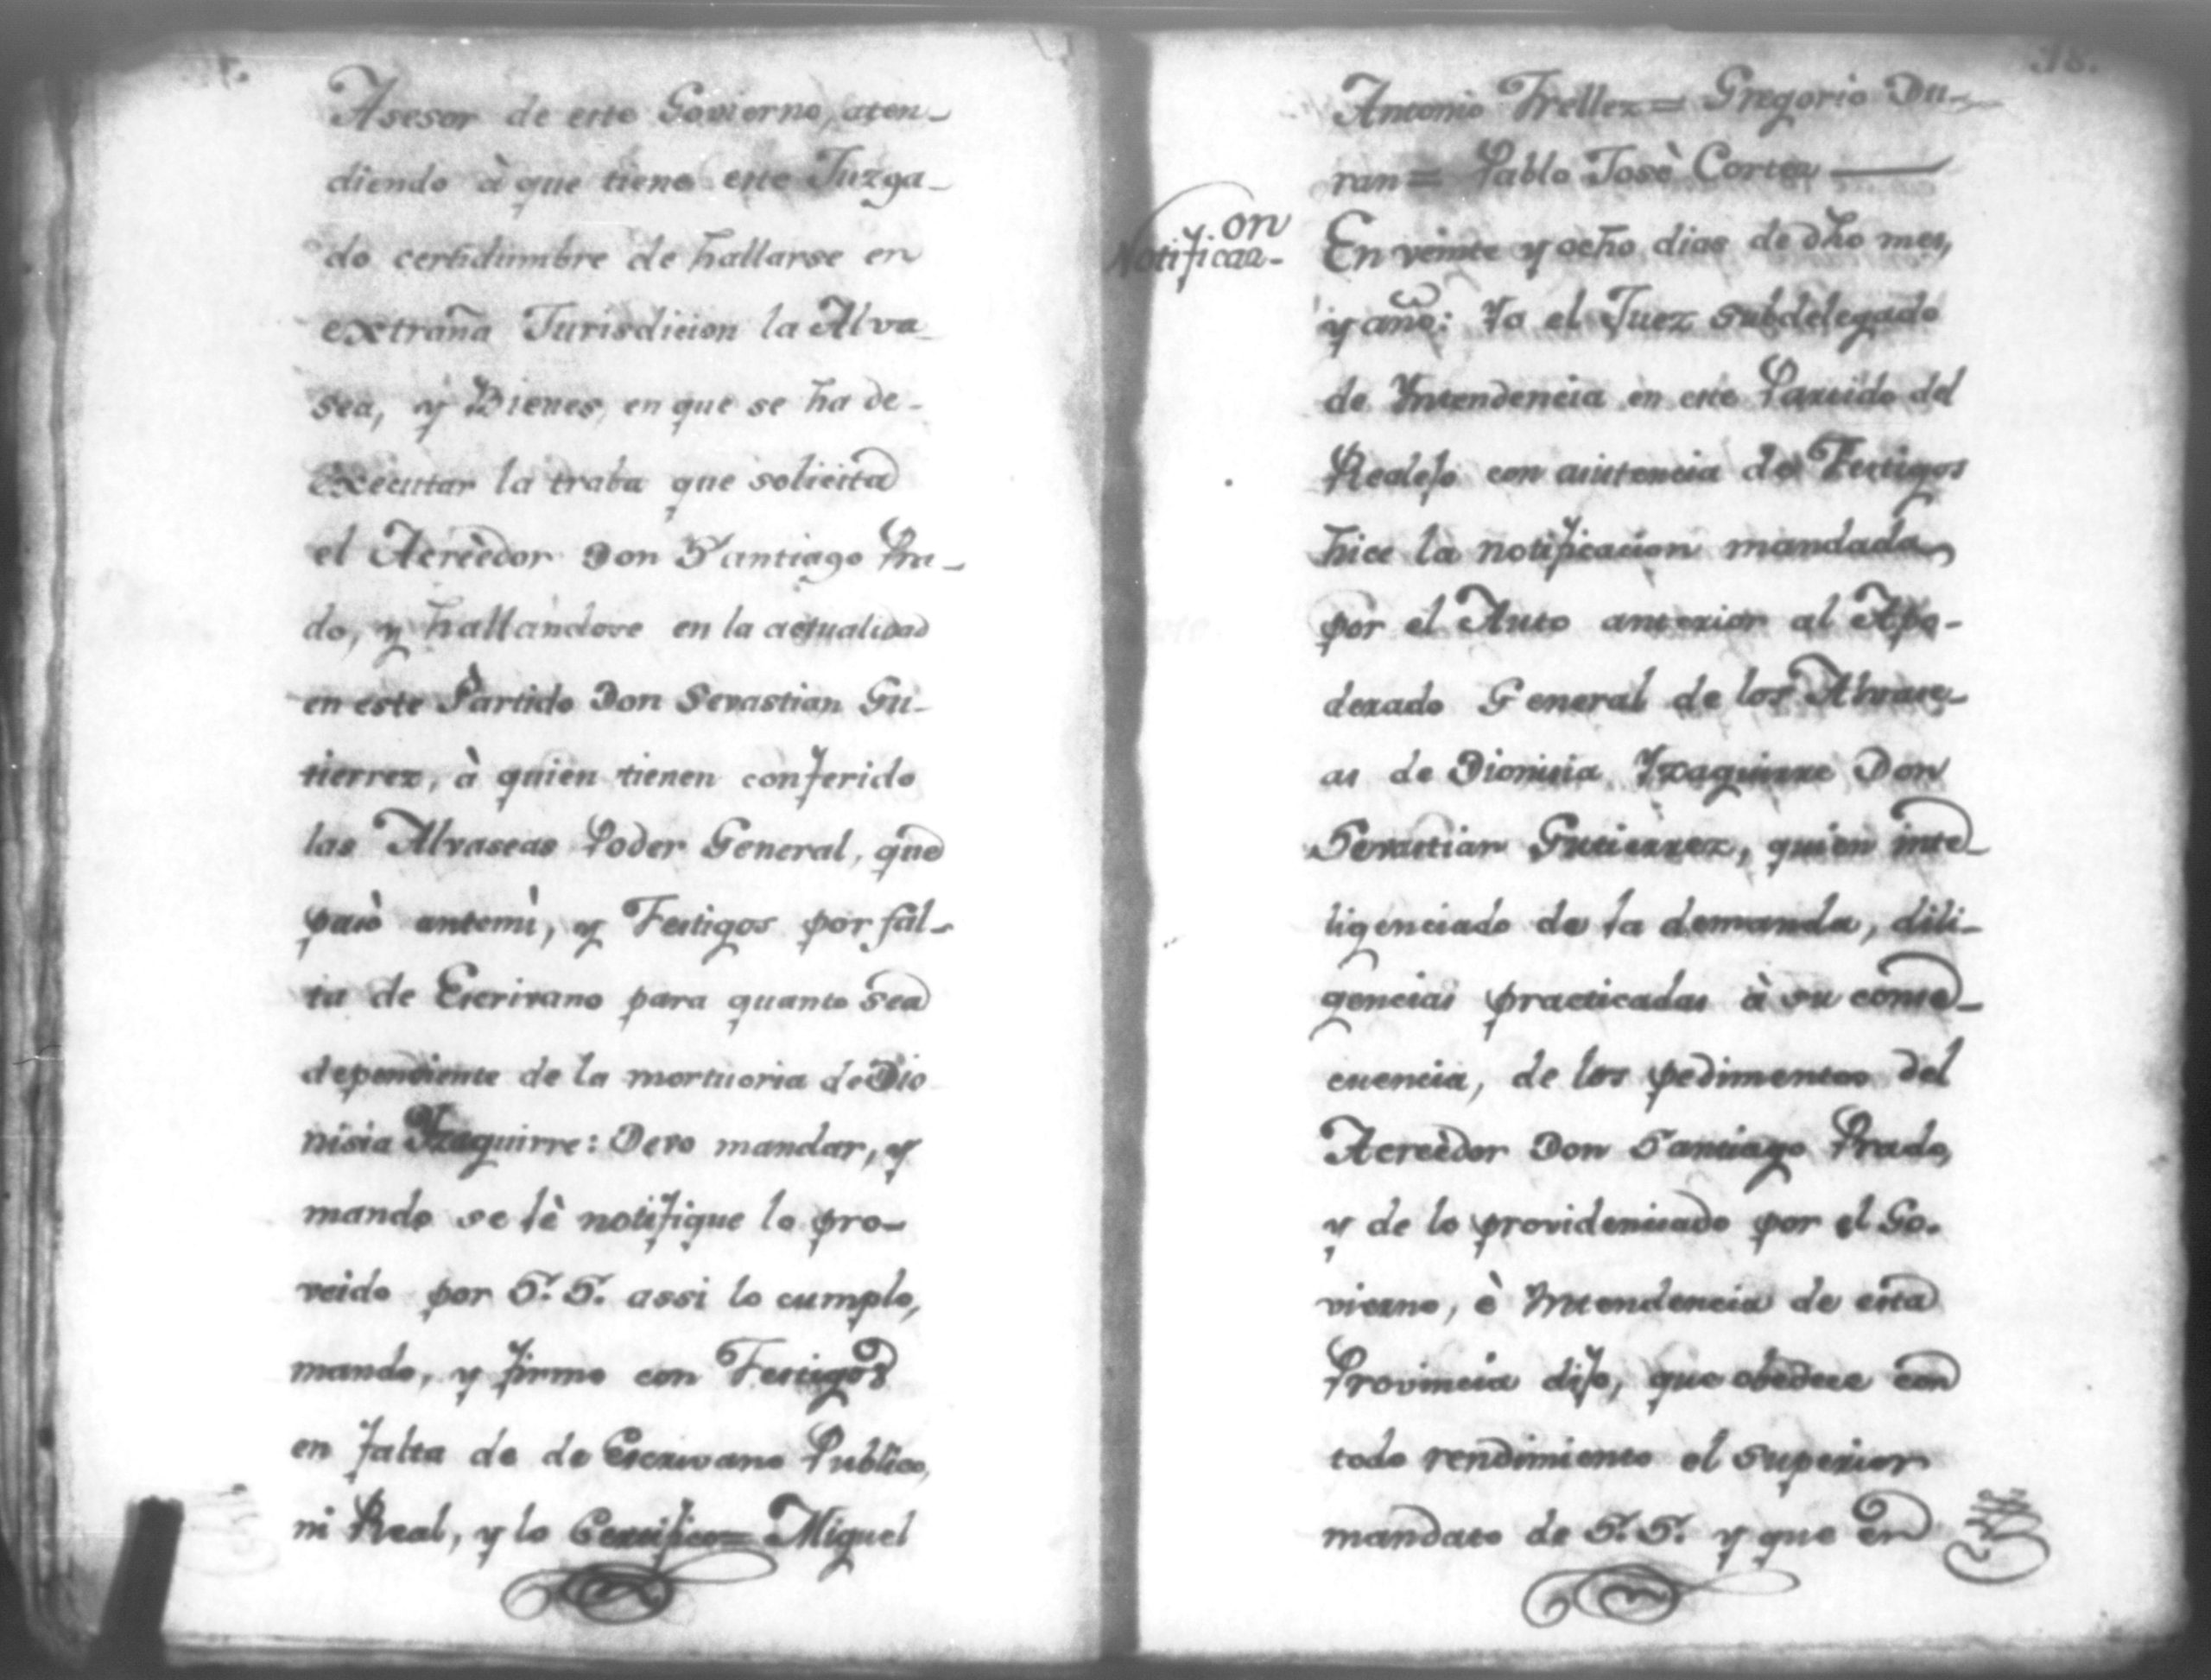 Asesor de este Govierno, aten-
diendo à que tiene este Juzga-
do certidumbre de hallarse en
extraña Jurisdicion la Alva-
sea, y Bienes, en que se ha de-
executar la traba que solicita
el Acreèdor Don Santiago Pra-
do, y hallandose en la actualidad
en este Partido Don Sevastian Gu-
tierrez, à quien tienen conferido
las Alvaseas Poder General, que
pasò antemi, y Testigos por fal-
ta de Escrivano para quanto sea
dependiente de la mortuoria de Dio
nisia Yzaguirre: Devo mandar, y
mando se lè notifique lo pro-
veido por S.S. assi lo cumplo,
mando, y firmo con Testigos
en falta de de Escrivano Publico,
ni Real, y lo Certifico= Miguel
38.
Antonio Trellez= Gregorio Du-
ran= Pablo Josè Cortez
Notificaz-on
En veinte y ocho dias de dho mes,
y año: Yo el Juez subdelegado
de Yntendencia en este Partido del
Realejo con asistencia de Testigos
hice la notificacion mandada
por el Auto anterior al Apo-
derado General de los Alvase-
as de Dionisia Yzaguirre Don
Sevastian Gutierrez, quien inte-
ligenciado de la demanda, dili-
gencias practicadas à su conse-
cuencia, de los pedimentos del
Acreèdor Don Santiago Prado,
y de lo providenciado por el Go-
vierno, è Yntendencia de esta
Provincia dijo, que obedece con
todo rendimiento el superior
mandato de S.S. y que en